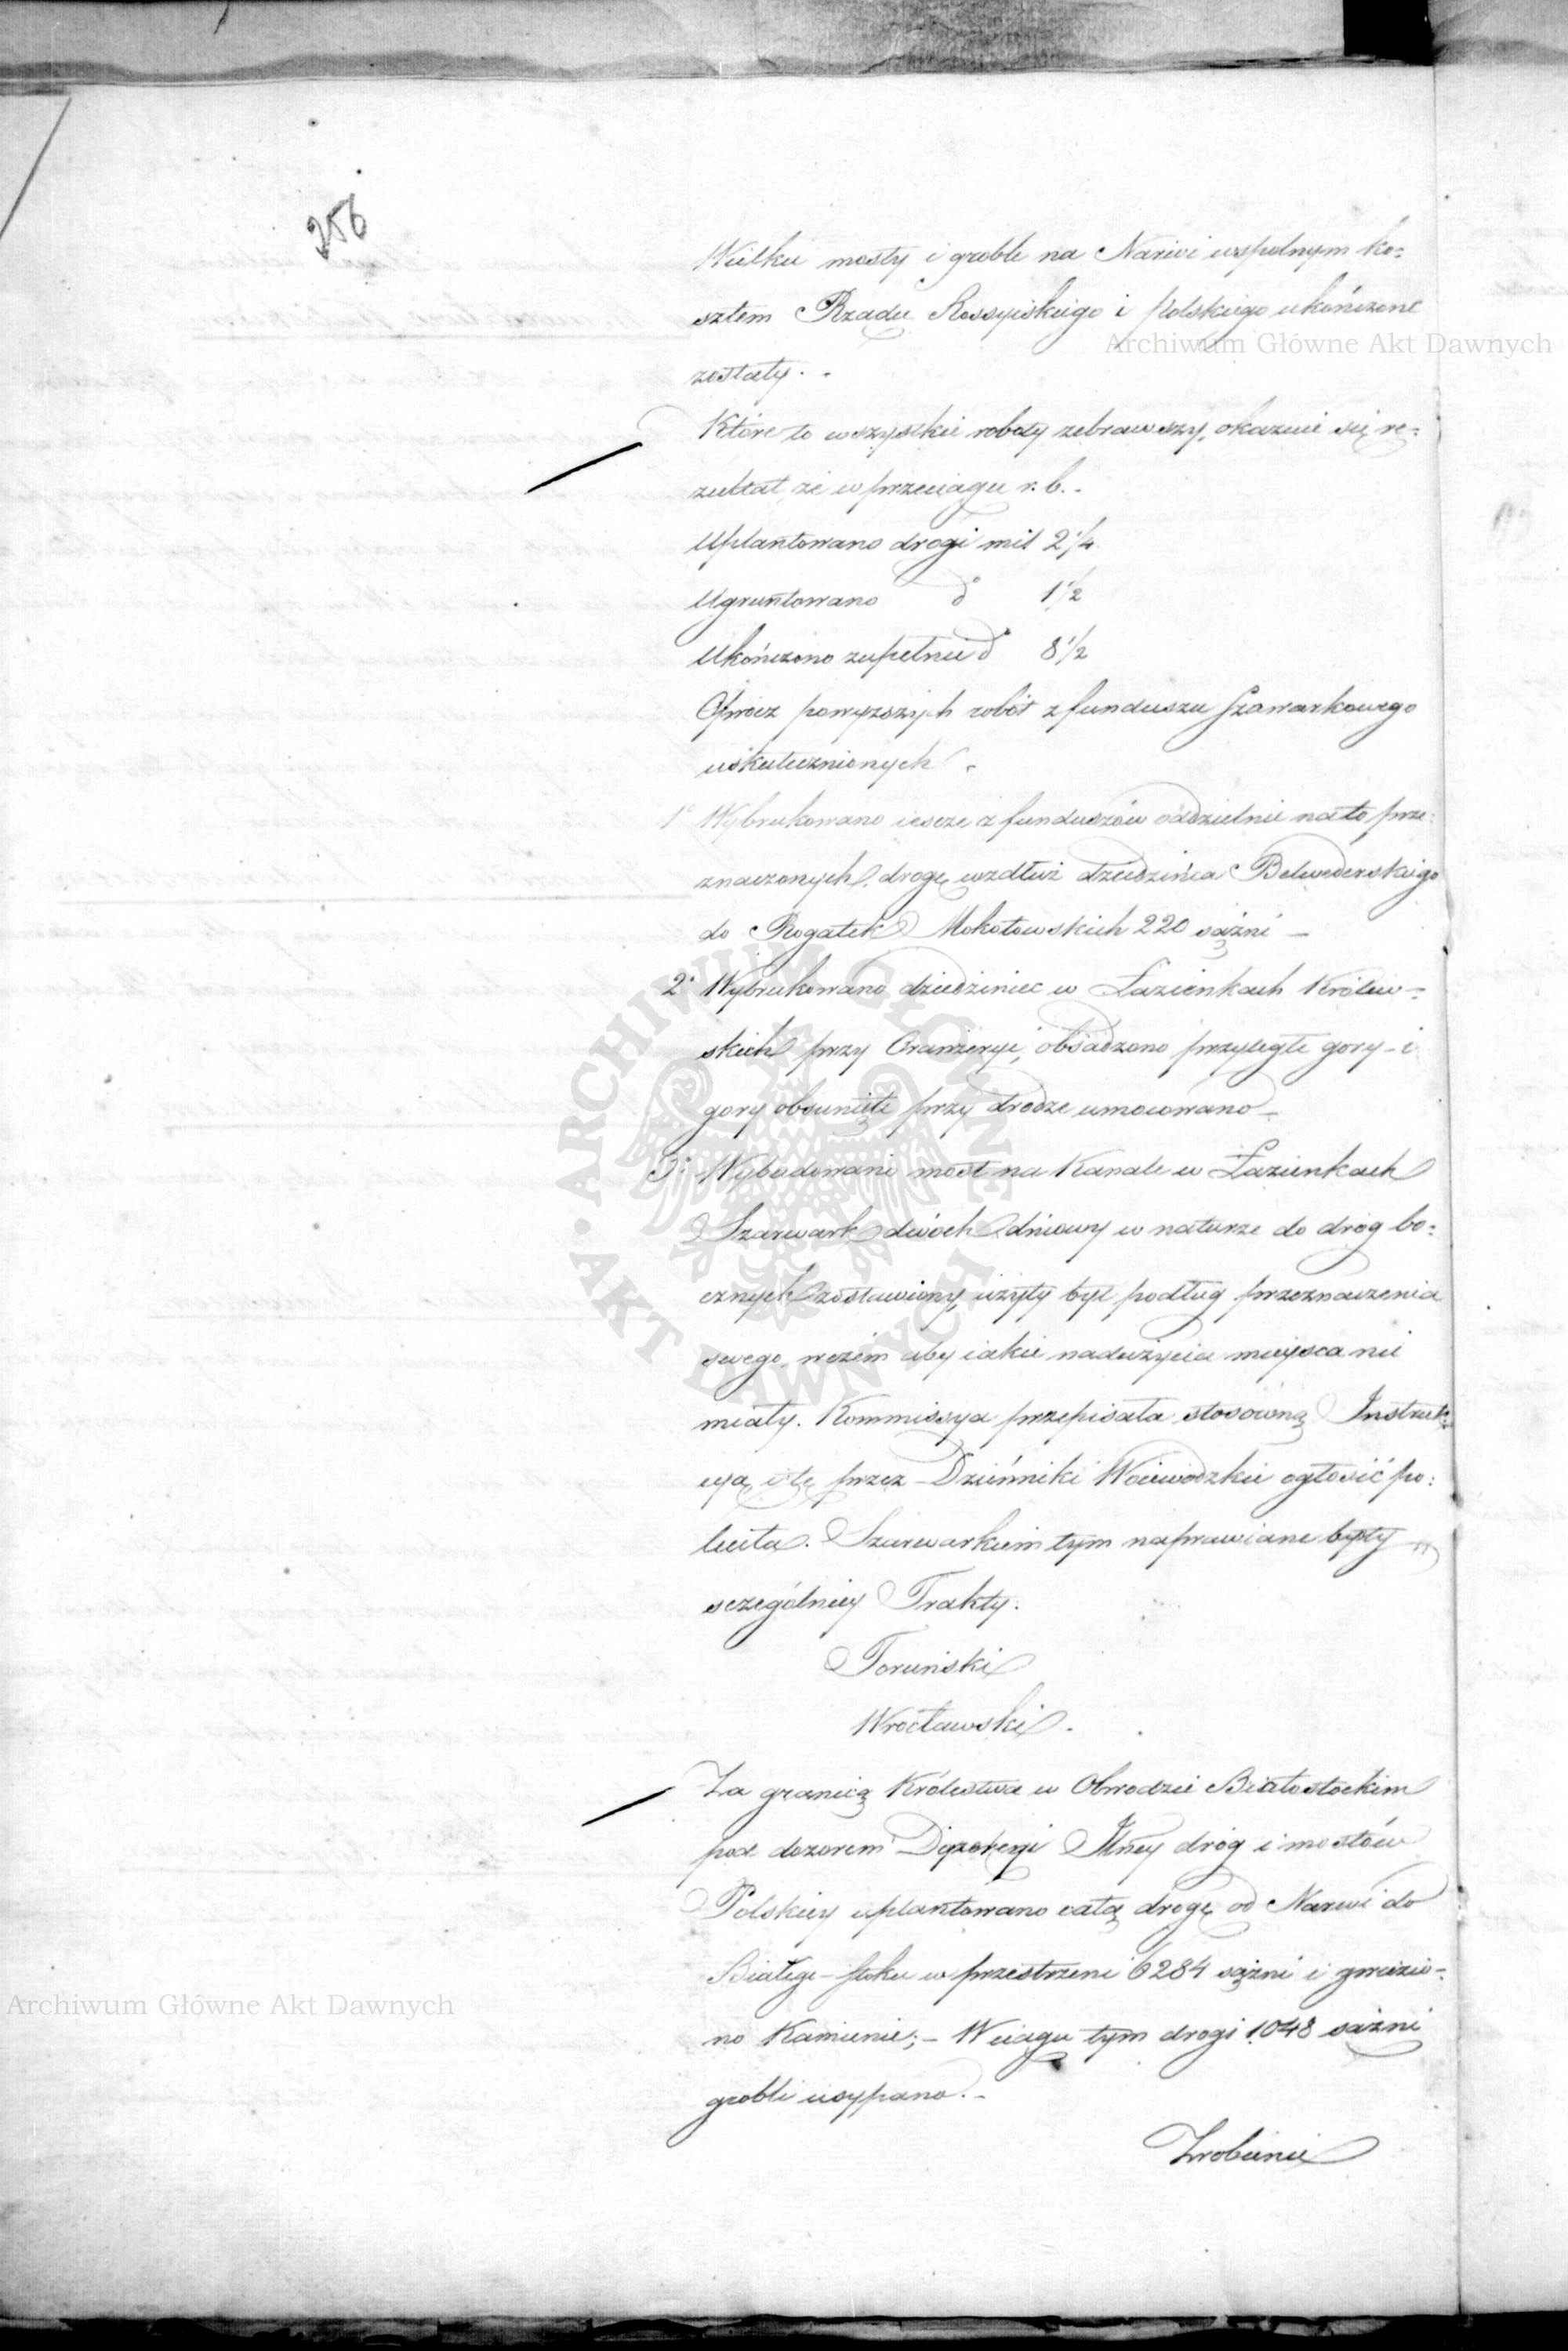 256
Wielkie mosty i groble na Narwi wspolnym ko=
sztem Rządu Rossyiskiego i Polskiego ukończone
zostały. -
Które to wszystkie roboty zebrawszy, okazuie się re=
zultat, że w przeciągu r. b. -
Uplantowano drogi mil 2 1/4
Ugruntowano do 1 1/2
Ukończono zupełnie do 8 1/2
Oprocz powyższych robót z funduszu Szarwarkowego
uskutecznionych -
1o Wybrukowano iescze z funduszów oddzielnie na to prze=
znaczonych, drogę wzdłuż dziedzińca Belwederskiego
do Rogatek Mokotowskich 220 sążni -
2o Wybrukowano dziedziniec w Łazienkach Królew=
skich przy Oranżeryi, obsadzono przyległe gory - i
gory obsunięte przy drodze umocowano -
3o Wybudowano most na Kanale w Łazienkach
Szarwark dwóch dniowy w naturze do dróg bo=
cznych zostawiony, użyty był podług przeznaczenia
swego, wczém aby iakie nadużycia mieysca nie
miały. Kommissya przepisała stosowną Instruk=
cyą i tę przez Dzienniki Woiewodzkie ogłosić po=
leciła. Szarwarkiem tym naprawiane były
szczególniey Trakty.
Toruński
Wrocławski.
Za granicą Królestwa w Obwodzie Białostockim
pod dozorem Dyrekcyi Jlney dróg i mostów
Polskiey uplantowano całą drogę od Narwi do
Białego-stoku w przestrzeni 6284 sążni i zwiezio=
no Kamienie; - W ciągu tym drogi 1048 sążni
grobli usypano. -
Zrobienie
Archiwum Główne Akt Dawnych
ARCHIWUM GŁÓWNE • AKT DAWNYCH •
Archiwum Główne Akt Dawnych